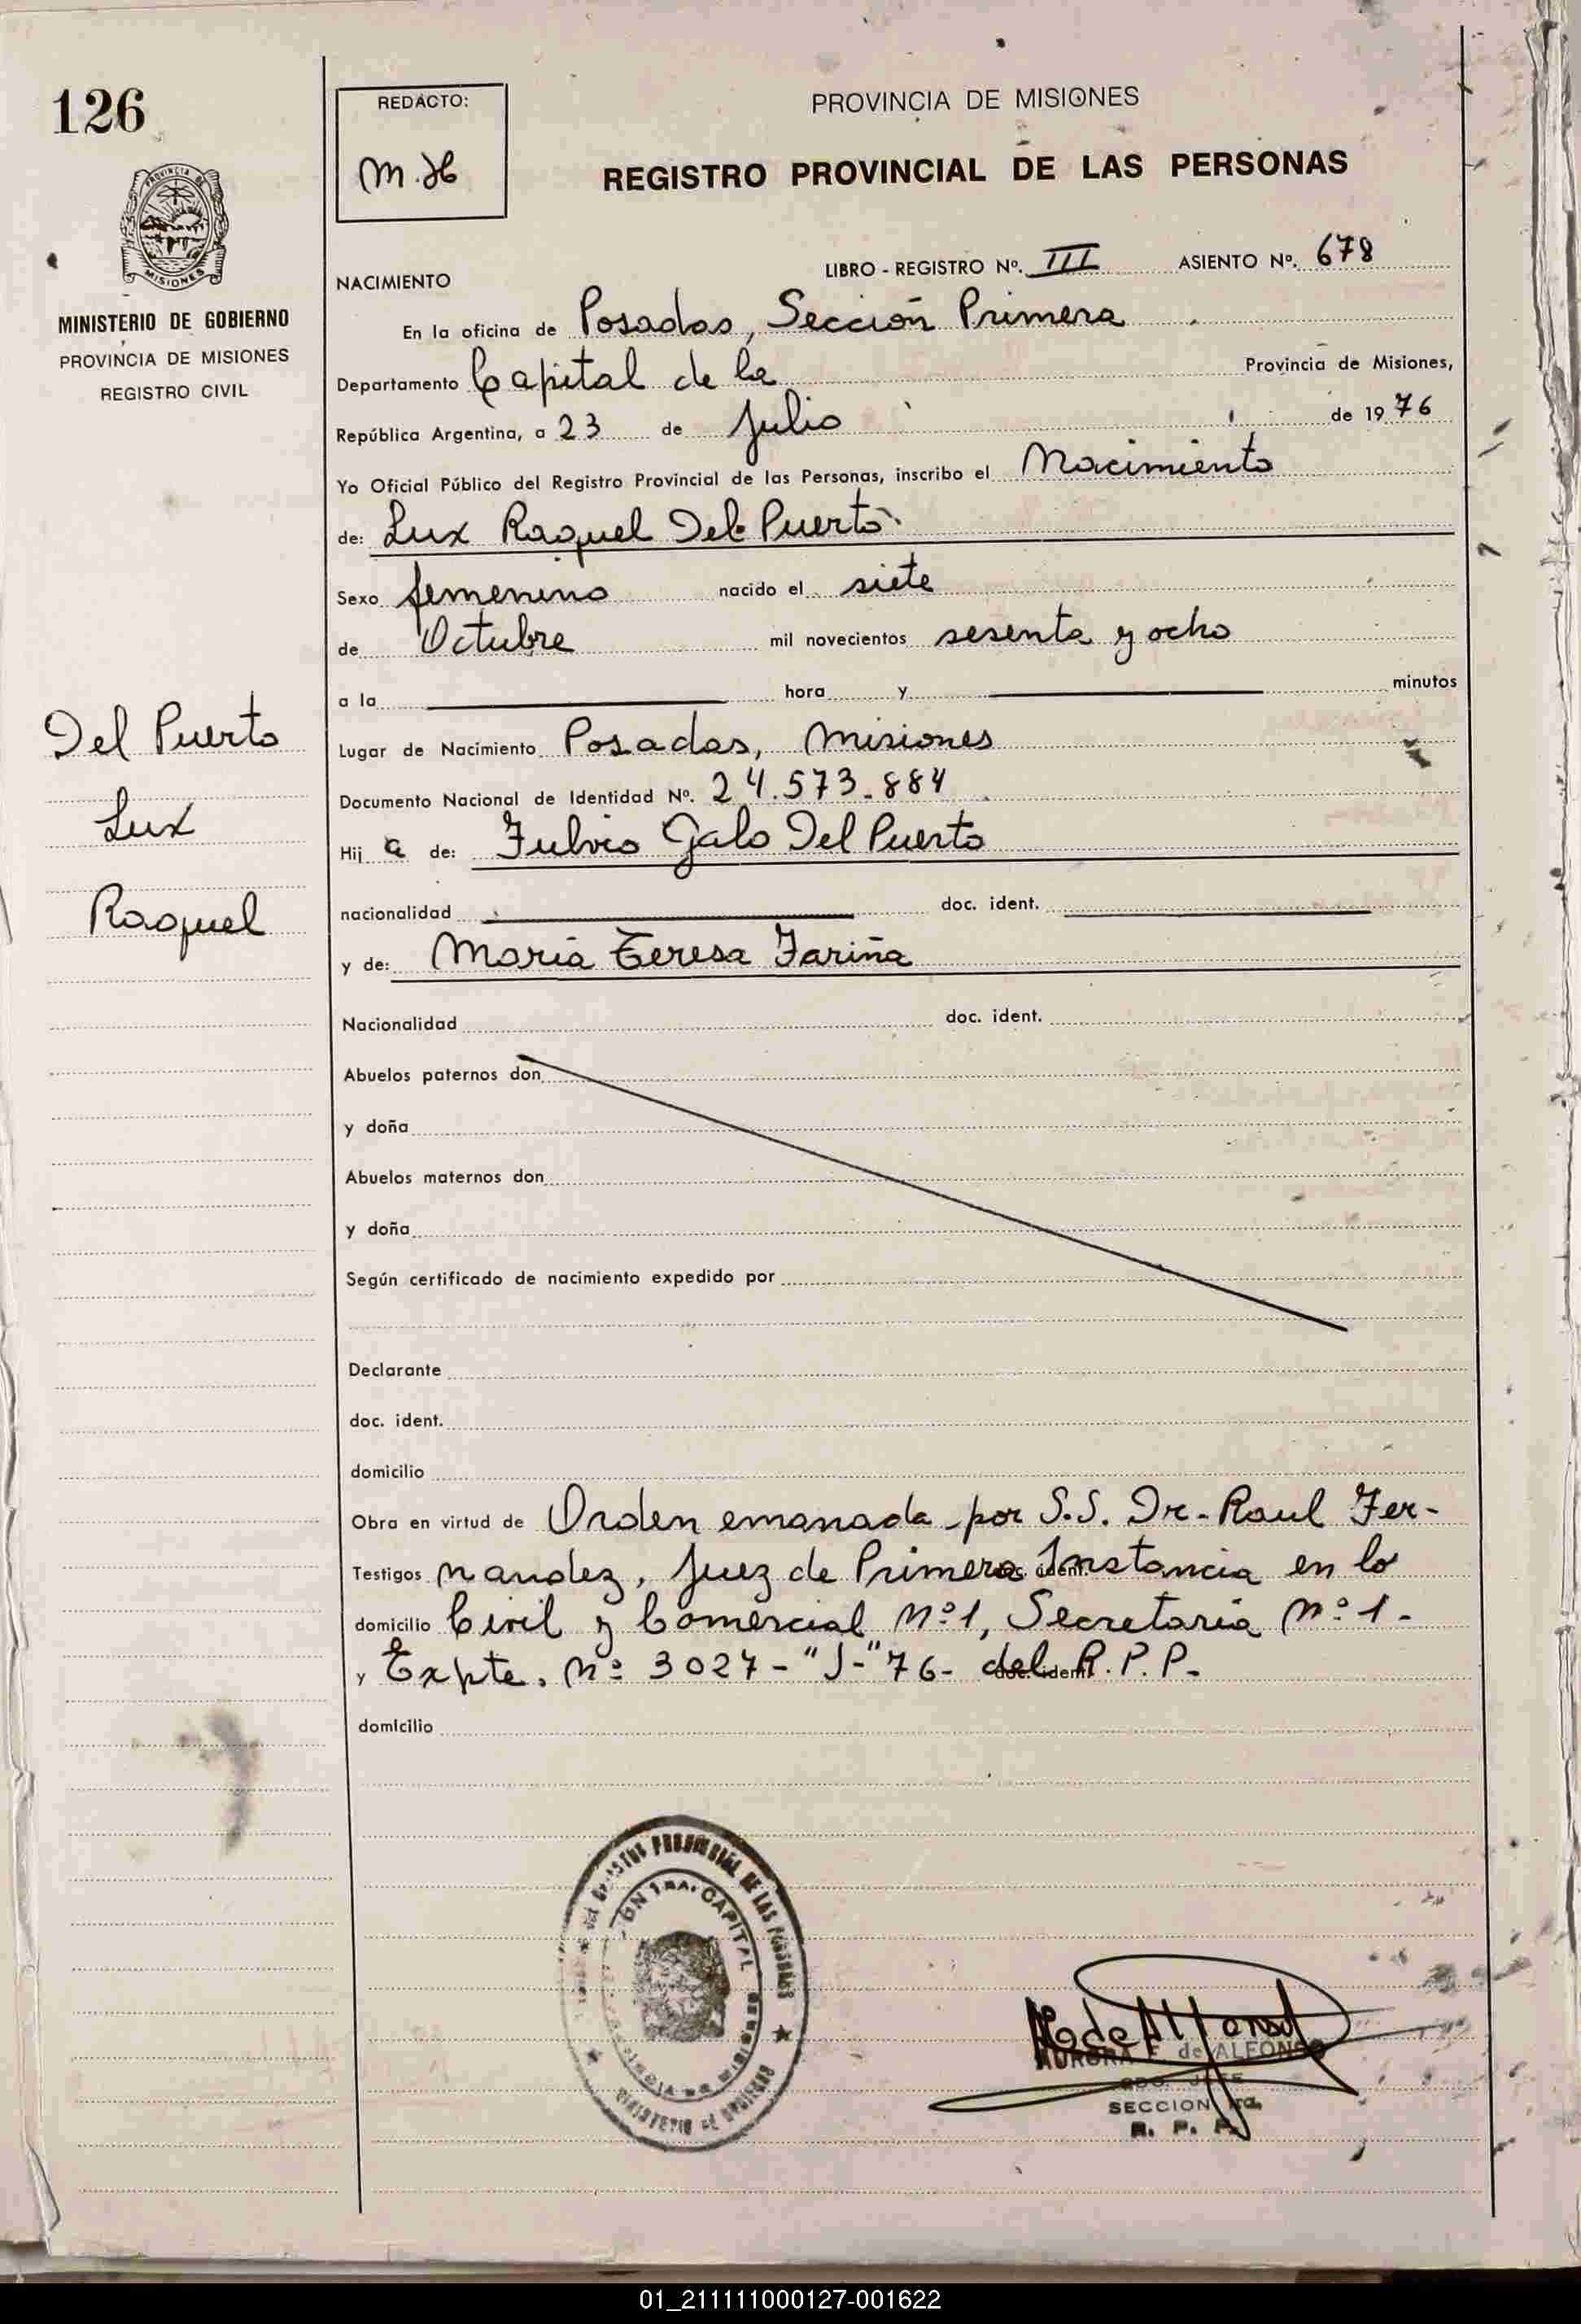 126
PROVINCIA DE
MISIONES
MINISTERIO DE GOBIERNO
PROVINCIA DE MISIONES
REGISTRO CIVIL
REDACTO:
M.H
PROVINCIA DE MISIONES
REGISTRO PROVINCIAL DE LAS PERSONAS
NACIMIENTO LIBRO - REGISTRO Nº. III ASIENTO Nº. 678
En la oficina de Posadas, Sección Primera
Departamento Capital de la Provincia de Misiones,
República Argentina, a 23 de Julio de 1976
Yo Oficial Público del Registro Provincial de las Personas, inscribo el Nacimiento
de: Lux Raquel Del Puerto
Sexo femenino nacido el siete
de Octubre mil novecientos sesenta y ocho
a la hora y minutos
Del Puerto
Lux
Raquel
Lugar de Nacimiento Posadas, Misiones
Documento Nacional de Identidad Nº. 24.573.884
Hij a de: Fulvio Galo Del Puerto
nacionalidad doc. ident.
y de: María Teresa Fariña
Nacionalidad doc. ident.
Abuelos paternos don
y doña
Abuelos maternos don
y doña
Según certificado de nacimiento expedido por
Declarante
doc. ident.
domicilio
Obra en virtud de Orden emanada por S.S. Dr. Raul Fer-
Testigos nandez, Juez de Primera Instancia en lo
domicilio Civil y Comercial Nº1, Secretaría Nº1-
y Expte. Nº 3027-"J-"76- del R.P.P.
domicilio
PROVINCIAL DE LAS PERSONAS
1RA. CAPITAL
AURORA F. de ALFONSO
SECCION 1ra.
R. P. P.
01_211111000127-001622